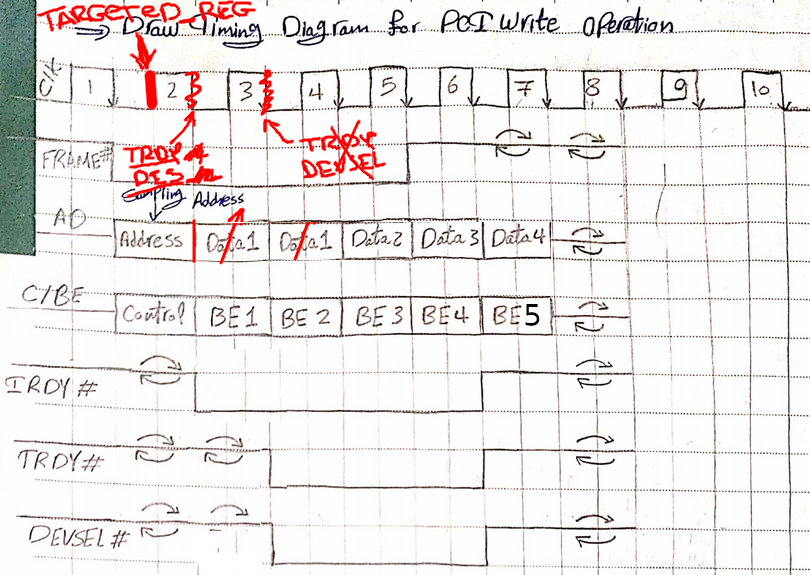 TARGETED_REG
=> Draw Timing Diagram for PCI Write Operation
Clk 1 2 3 4 5 6 7 8 9 10
TRDY
TRDY
FRAME# DIS DEVSEL
Sampling Address
AD Address Data1 Data1 Data2 Data3 Data4
C/BE Control BE1 BE2 BE3 BE4 BE5
IRDY#
TRDY#
DEVSEL#